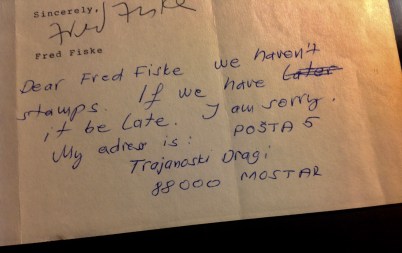 Sincerely,
Fred Fiske
Fred Fiske
Dear Fred Fiske we haven't
stamps. If we have Later
it be late. I am sorry.
My adress is: POŠTA 5
Trajanoski Dragi
88000 MOSTAR